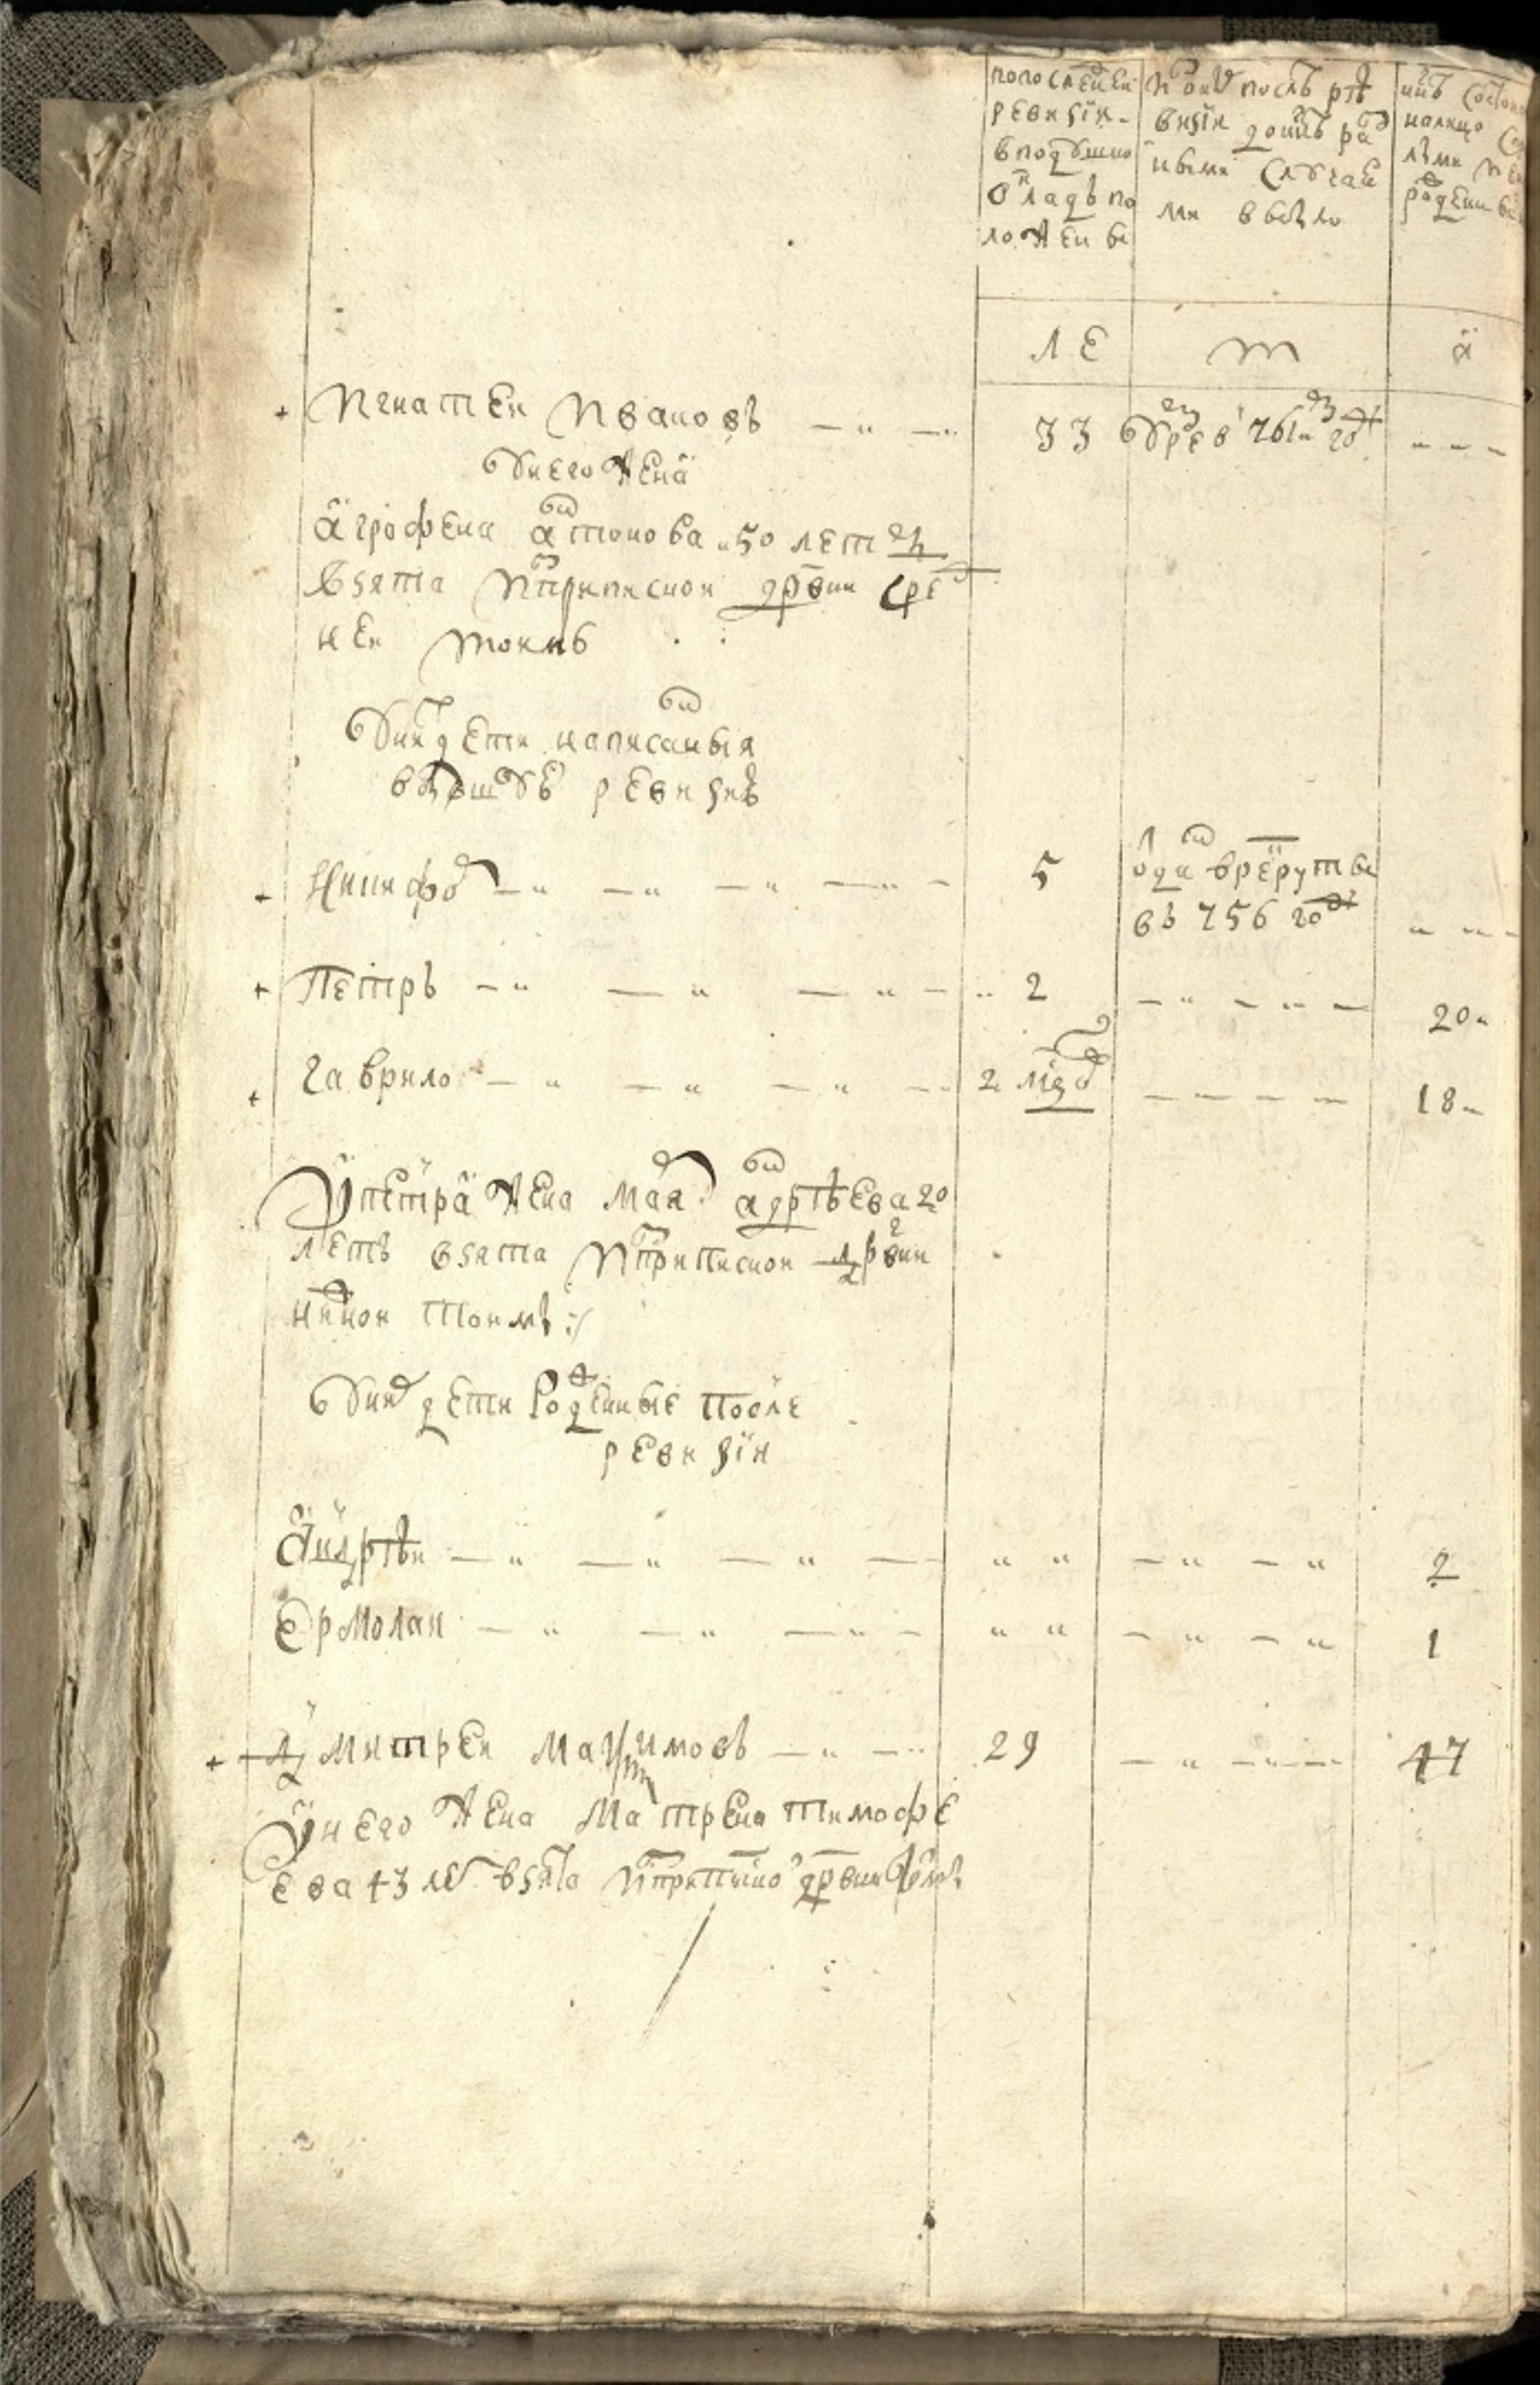 попоследнеи
ревизiи
вподушно
окладъ по
ложены
И оны после ре
визiи доныне раз
ными случаи
ми выбыло
ныне состои
налицо
родены
ЛЕ
т
а
Игнатеи Ивановъ 33 умре в 761м году
у него жена
агрофена антонова 50 летъ
взята исприписнои дрвни сред
неи тоимы
у них дети написанныя
впрошлую ревизию
Никифоръ 5 одан врекруты
въ 756 году
Петръ 2 20
гаврило 2 мцд 18
у петра жена маря андреева 20
летъ взята исприписнои дрвни
нижнои тоимы
у них дети рожденные после
ревизiи
андреи 2
ермолаи 1
дмитреи Максимовъ 29 47
у него жена матрена тимофе
ева 43 ле взята исприписно дрвни